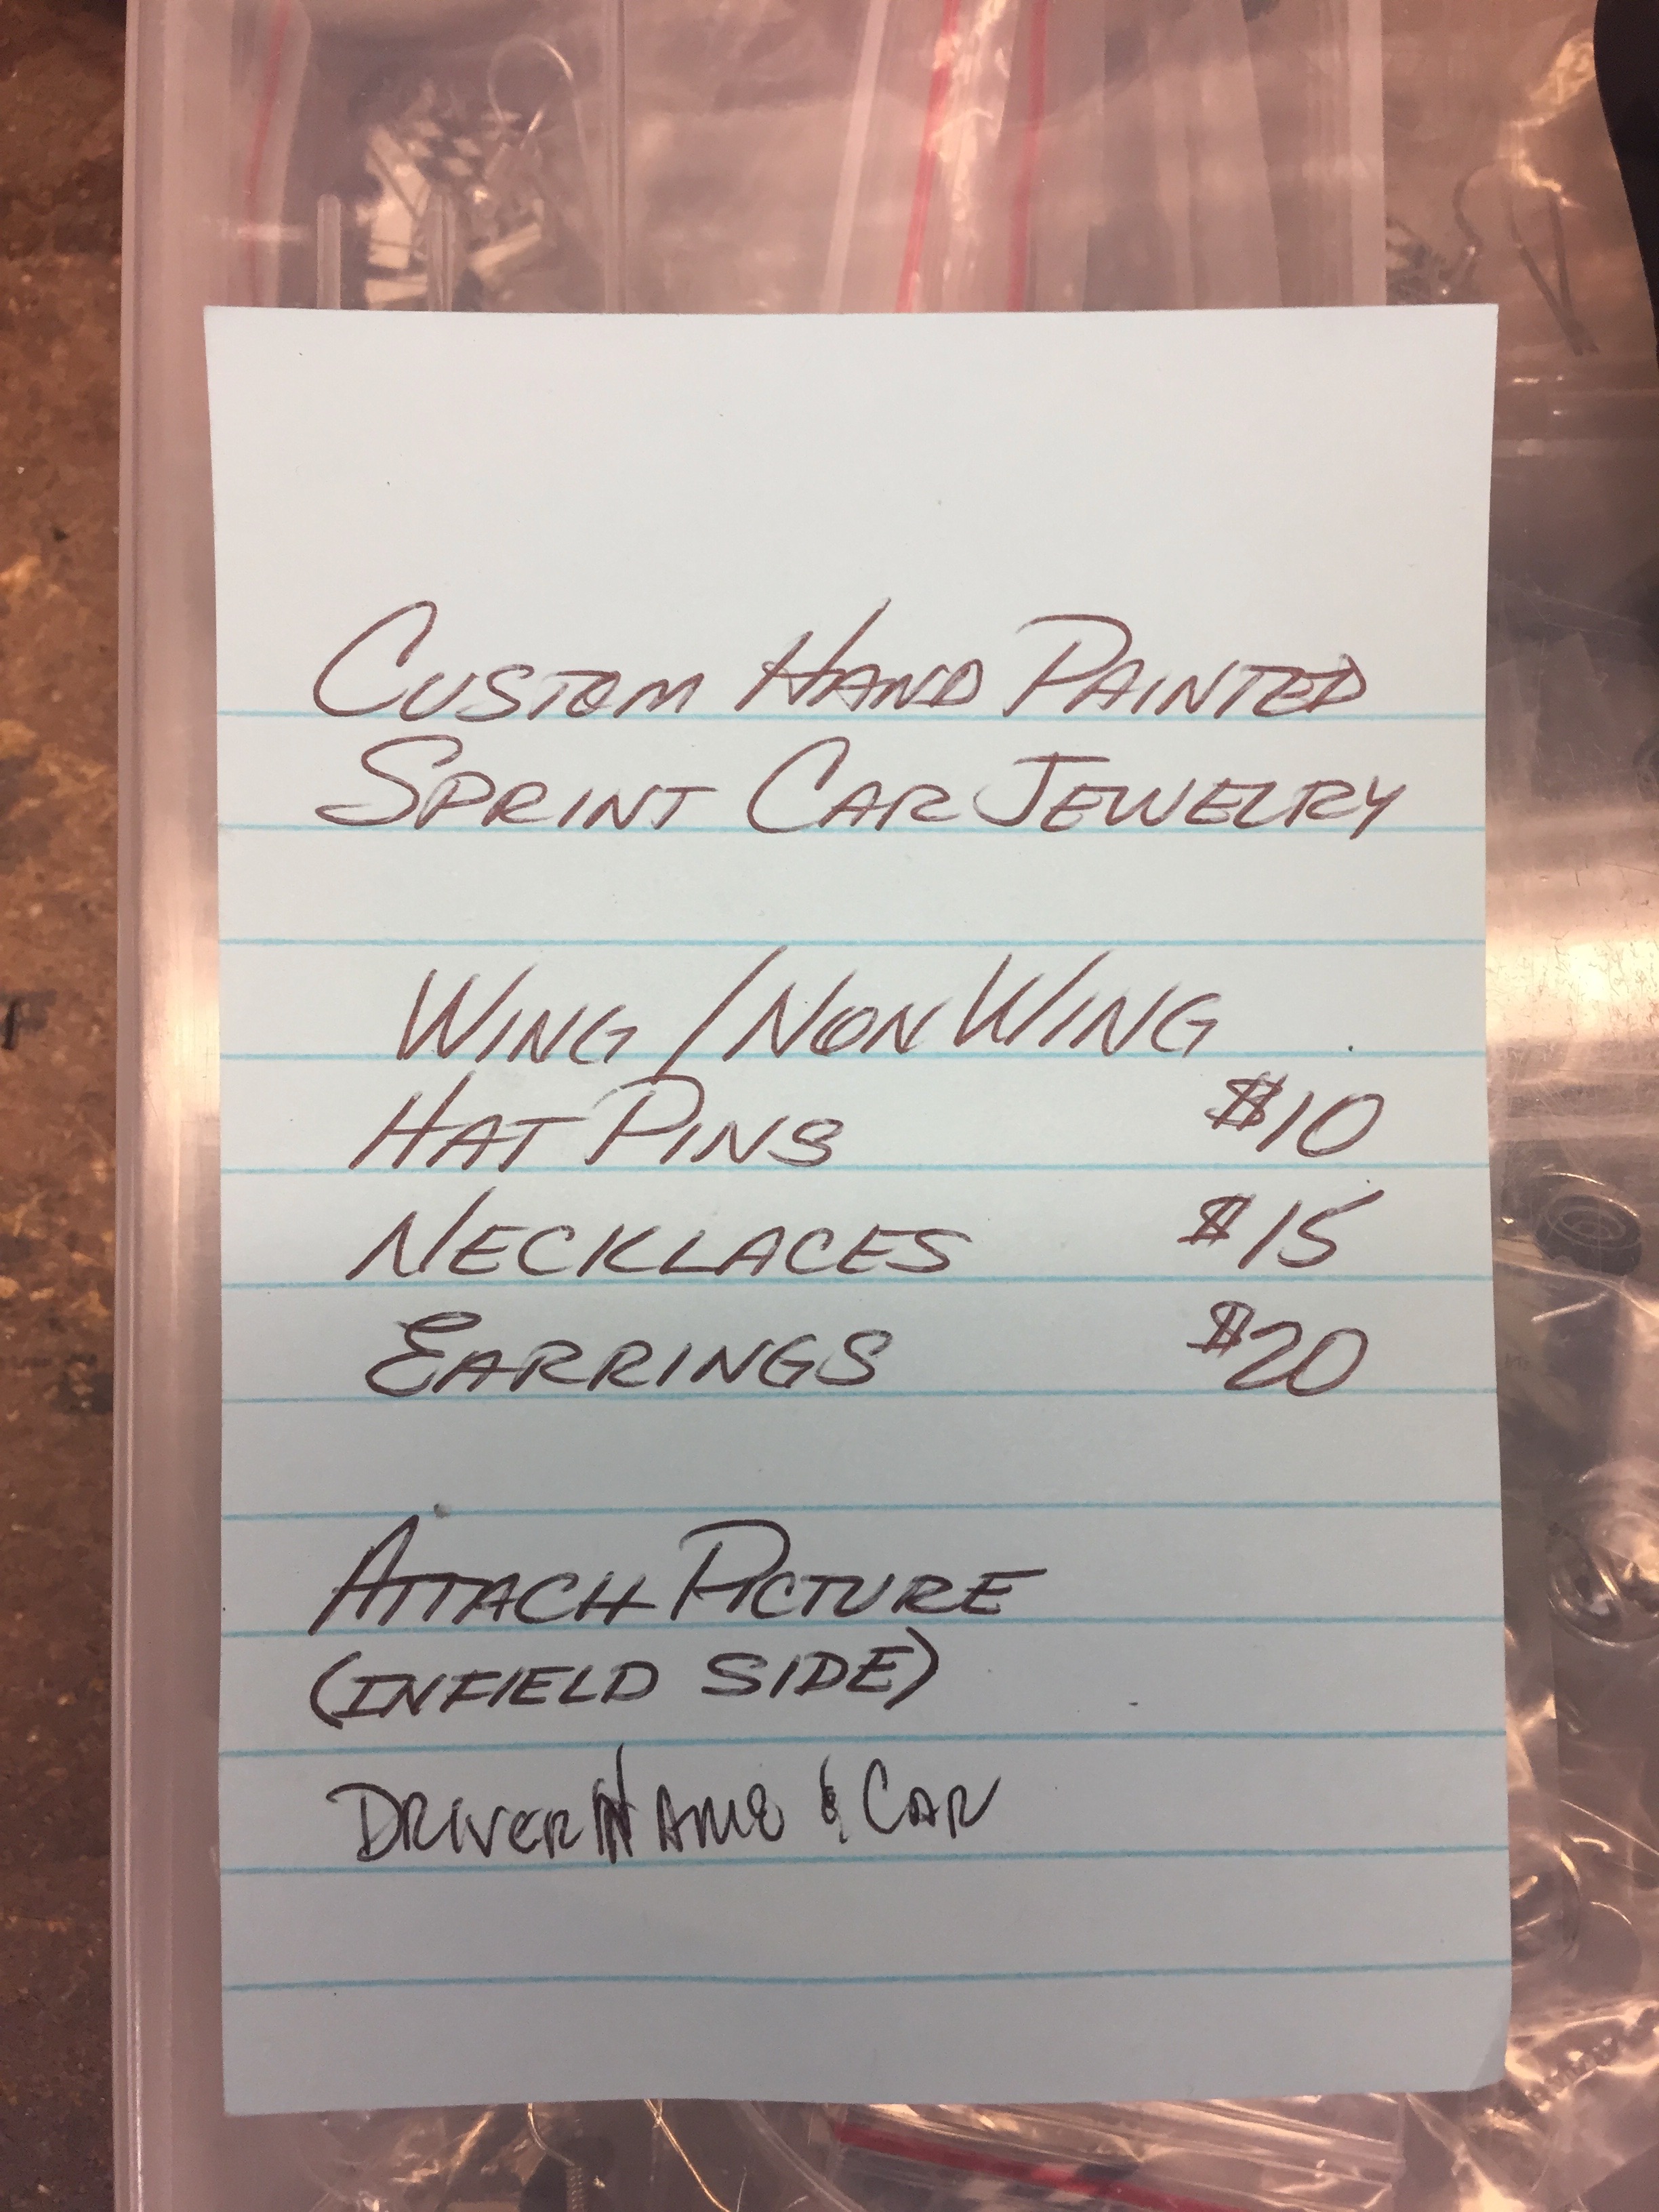 CUSTOM HAND PAINTED
SPRINT CAR JEWELRY
WING / NON WING
HAT PINS $10
NECKLACES $15
EARRINGS $20
ATTACH PICTURE
(INFIELD SIDE)
DRIVER NAME & CAR